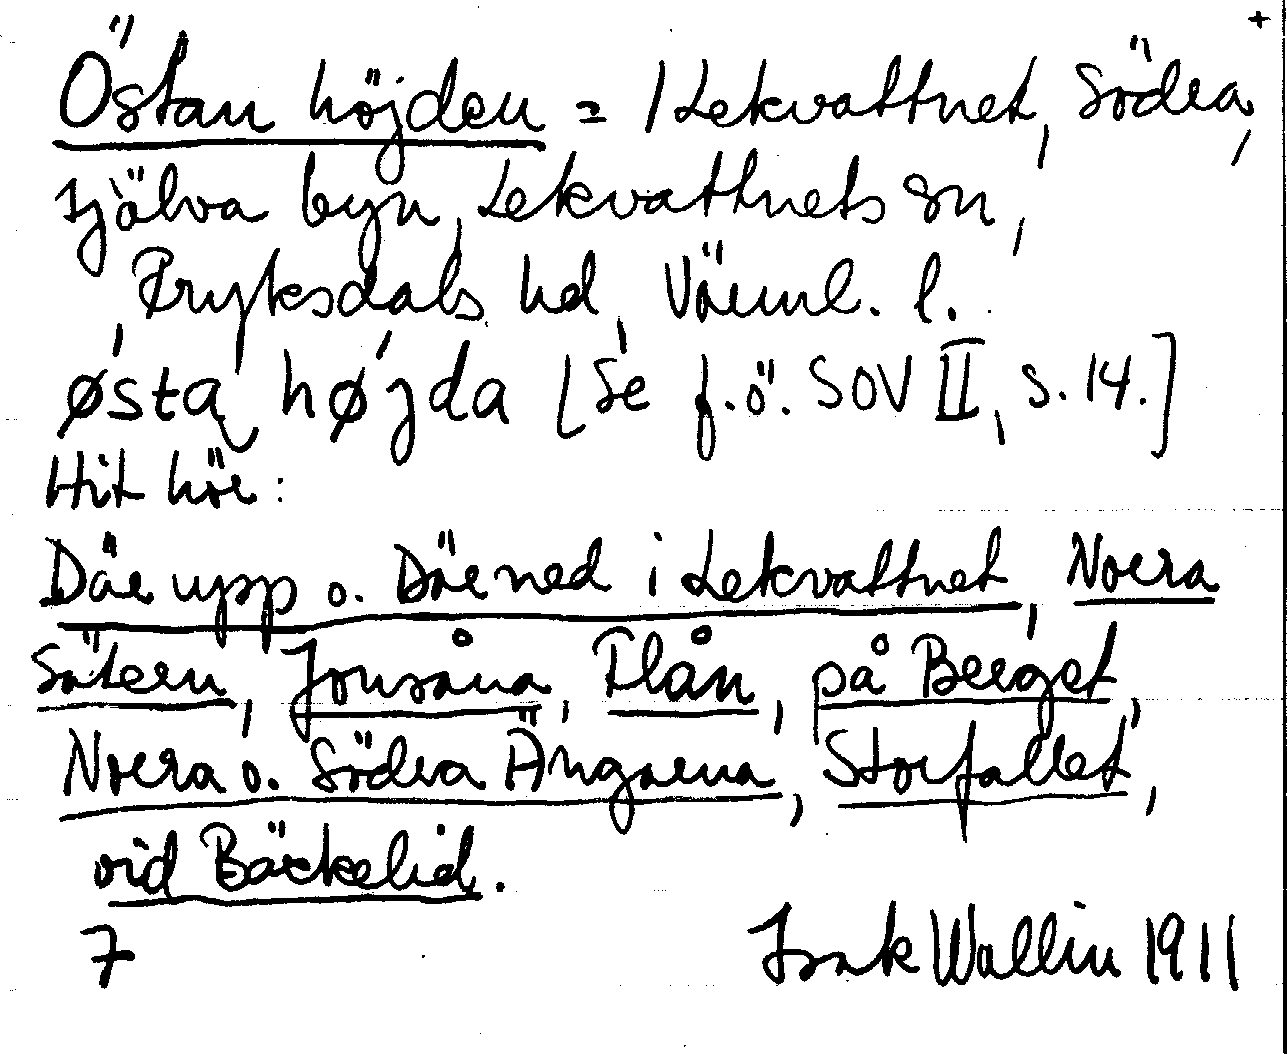 +
Östan höjden = / Lekvattnet, Södra,
själva byn, Lekvattnets sn,
Fryksdals hd, Värml. l.
ø̀sta̢ hø̀jda [Se f.ö. SOV II, s. 14.]
Hit hör:
Där upp o. Där ned i Lekvattnet, Norra
Sätern, Jonsåna, Flån, på Berget,
Norra o. Södra Ängarna, Storfallet,
vid Bäckelid.
7 Isak Wallin 1911